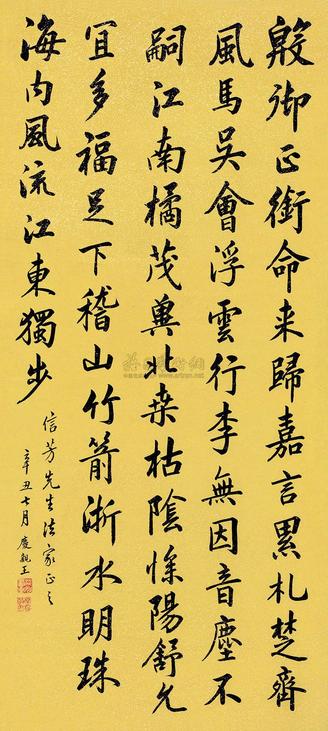 殷御正銜命来歸嘉言累札楚齊
風馬吳會浮雲行李無因音塵不
嗣江南橘茂冀北桒枯陰惨陽舒允
宜多福足下稽山竹箭淅水明珠
海内風流江東獨步
信芳先生法家正之
辛丑七月 慶親王